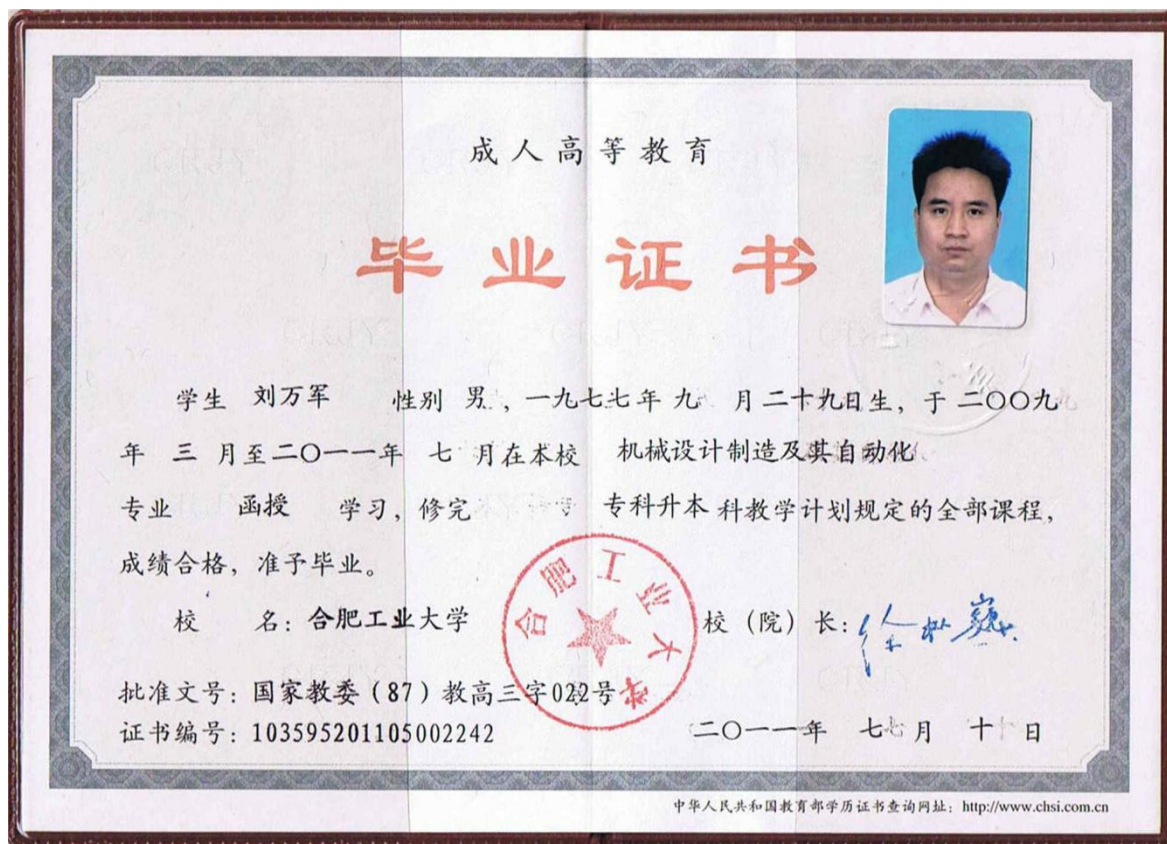 成人高等教育
毕业证书
学生 刘万军 性别 男，一九七七年 九 月二十九日生，于 二〇〇九
年 三 月至二〇一一年 七 月在本校 机械设计制造及其自动化
专业 函授 学习，修完 专科升本 科教学计划规定的全部课程，
成绩合格，准予毕业。
校 名：合肥工业大学 校（院）长：徐枞巍
合肥工业大学
批准文号：国家教委（87）教高三字022号
证书编号：103595201105002242 二〇一一年 七 月 十 日
中华人民共和国教育部学历证书查询网址：http://www.chsi.com.cn